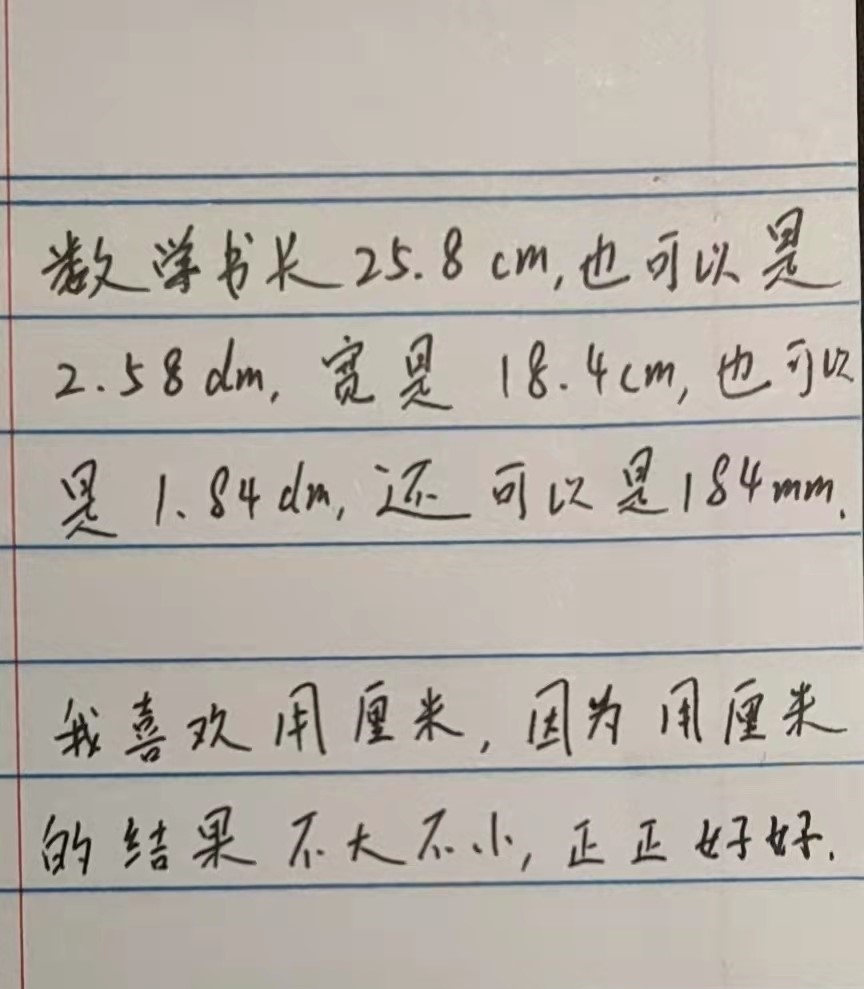 数学书长25.8cm,也可以是
2.58dm,宽是 18.4cm,也可以
是 1.84dm,还可以是184mm.
我喜欢用厘米,因为用厘米
的结果不大不小,正正好好.